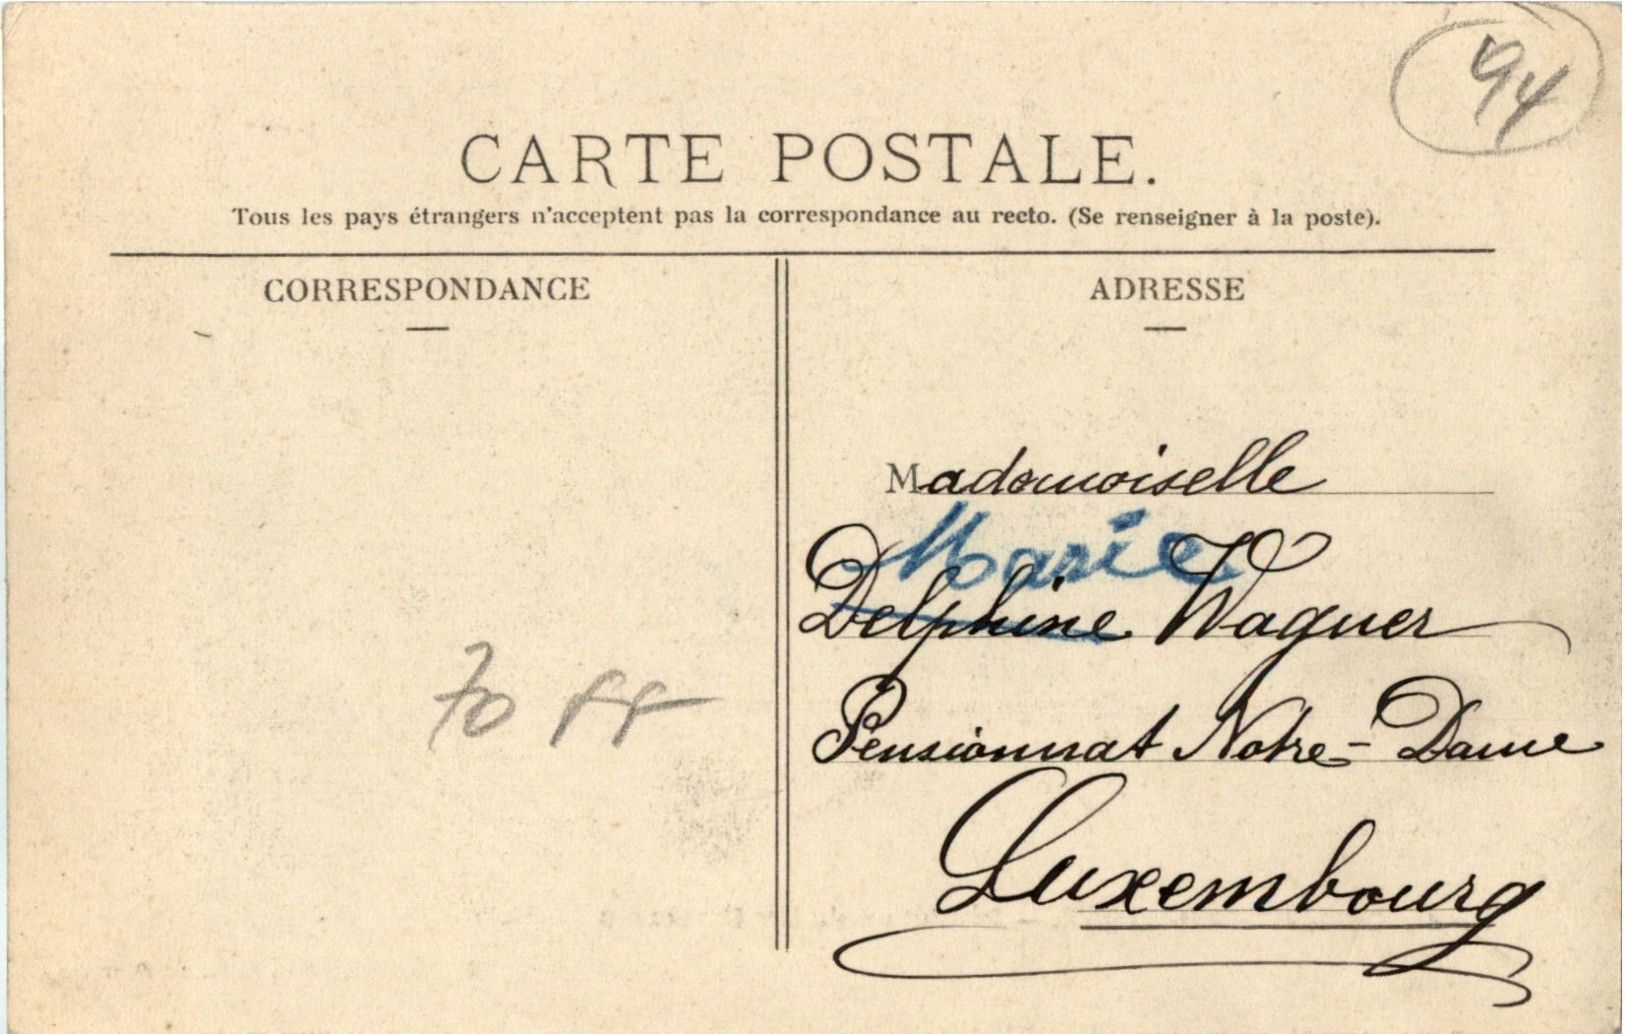 94
CARTE POSTALE.
Tous les pays étrangers n'acceptent pas la correspondance au recto. (Se renseigner à la poste).
CORRESPONDANCE
70 FF
ADRESSE
Mademoiselle
Marie
Delphine Wagner
Pensionnat Notre-Dame
Luxembourg